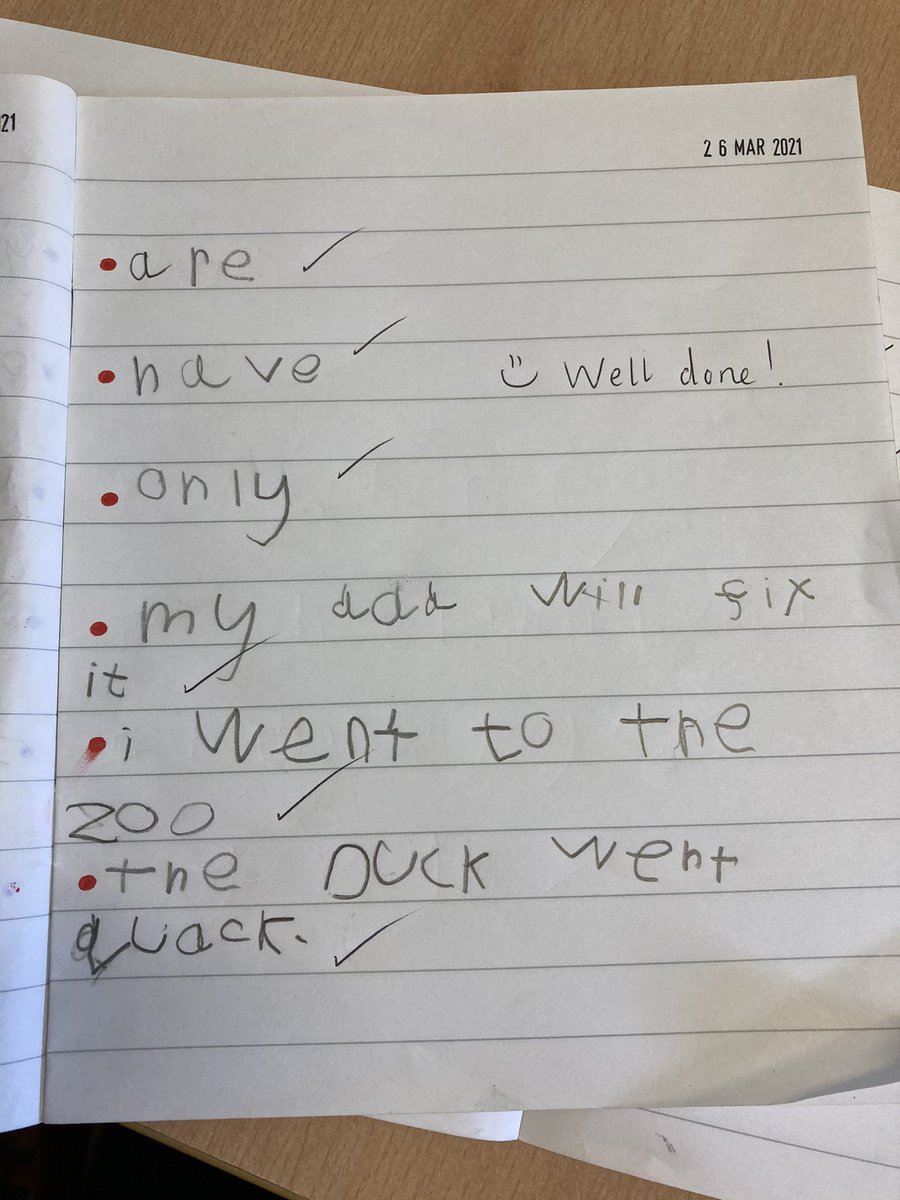 21
26 MAR 2021
• are ✓
• have ✓
Well done!
• only ✓
• my dad will fix
it ✓
• i went to the
zoo ✓
• the DUCK went
quack. ✓